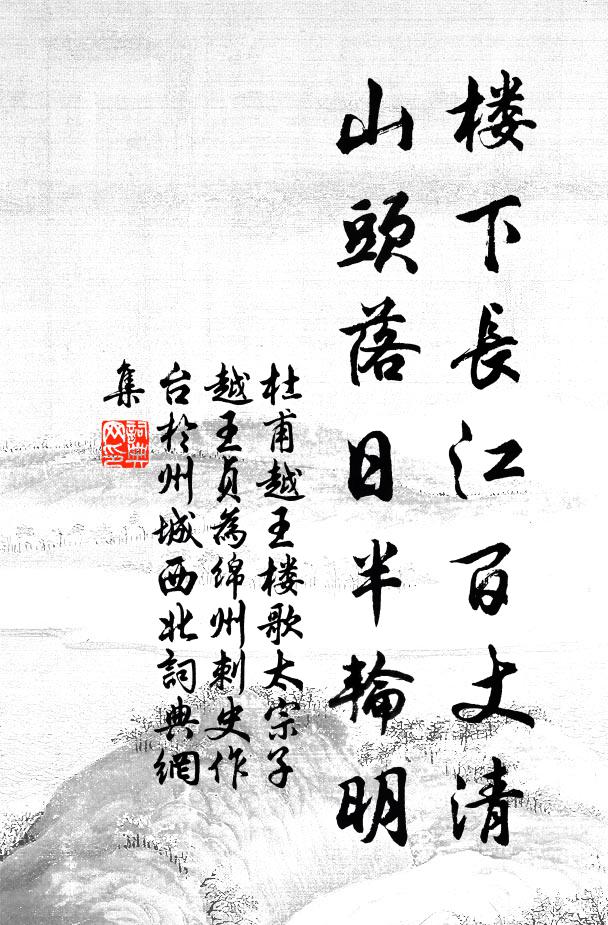 楼下長江百丈清
山頭落日半輪明
杜甫越王楼歌太宗子
越王貞為绵州刺史作
台於州城西北詞典網
集